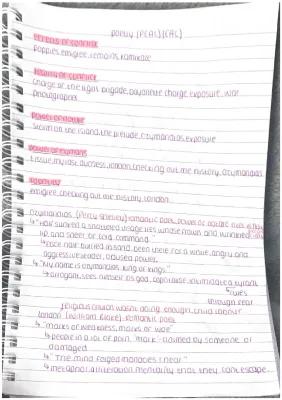 poetry (PEAL)(EAL)
effects of conflict
poppies, emigree, remains, kamikaze
reality of conflict
charge of the light brigade, bayonette charge, exposure, war
photographer
power of nature
storm on the island, the prelude, ozymandias, exposure
power of humans
tissue, my last duchess, london, checking out me history, ozymandias
identity
emigree, checking out me history, london
Ozymandias (Percy Shelley) romantic poet,
↳ "Half sunk(ed) a shattered visage lies whose frown and wrinkled
lip and sneer of cold command"
↳ face half buried in sand, been there for a while, angry and
aggressive leader, abused power.
↳ "My name is ozymandias king of kings."
↳ arrogant, sees himself as god, intimidated tyrant
rules
through fear
religious church wasn't doing enough, child labour
london (william Blake) romantic poet
↳ "marks of weakness, marks of woe"
↳ people in a lot of pain, "mark" - claimed by someone or
damaged
↳ "The mind forged manacles I hear"
↳ metaphor, alliteration, mentality that they cant escape...